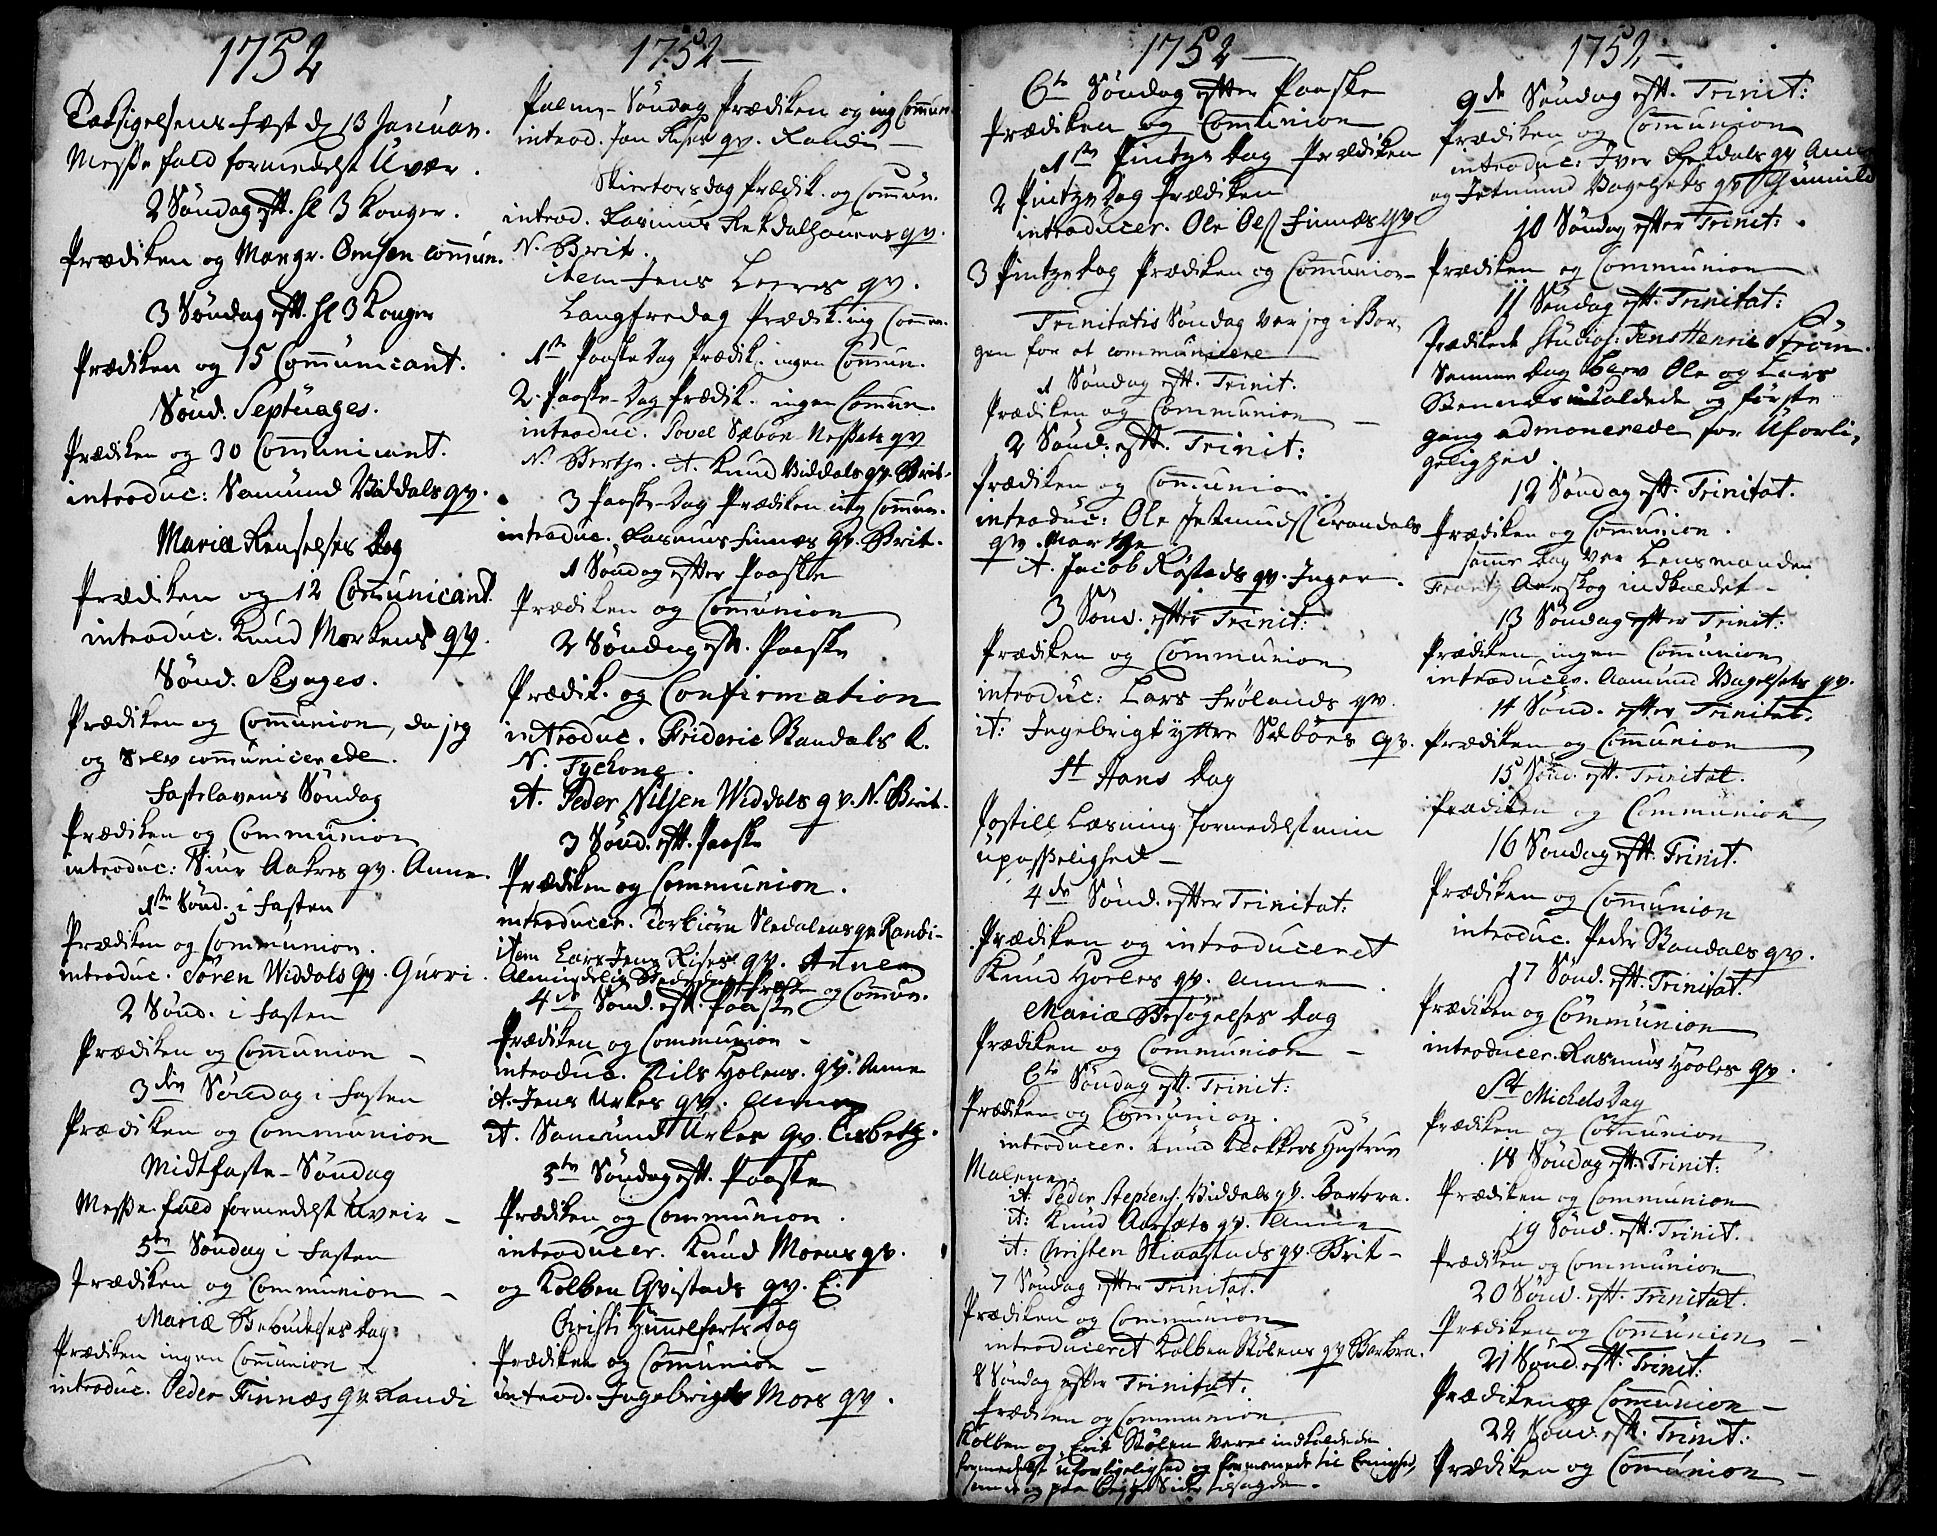 1752
Tacksigelsens Fæst d. 13 Januar.
Messe fald formedelst Uvær.
2 Søndag efft. hl 3 Konger.
Prædiken og Margr. Omsen commun.
3 Søndag efft. hl 3 Konger
Prædiken og 15 Communicant.
Sønd. Septuages.
Prædiken og 30 Communicant.
introduc: Samund Viddals qv.
Mariæ Renselses Dag
Prædiken og 12 Communicant.
introduc. Knud Morkens qv.
Sønd. Sexages.
Prædiken og Communion, da jeg
og selv communicerede.
Fastelavens Søndag
Prædiken og Communion
introduc: Siur Aakres qv. Anne.
1ste Sønd. i Fasten
Prædiken og Communion.
introduc. Søren Widdals qv. Gurri.
2 Sønd. i Fasten
Prædiken og Communion –
3die Søndag i Fasten
Prædiken og Communion
Midtfaste-Søndag
Messe fald formedelst Uveir –
5te Søndag i Fasten
Prædiken og Communion –
Mariæ Bebudelses Dag
Prædiken ingen Communion
introduc. Peder Finnæs qv. Randi
1752 –
Palme-Søndag Prædiken og ing Commun.
introd. Jon qv. Randi –
Skiertorsdag Prædik. og Commun.
introd. Rasmus Rekdalhouens qv.
N. Brit.
item Jens Leeres qv.
Langfredag Prædik. ing Commun.
1ste Paaske Dag Prædik. ingen Commun.
2. Paaske-Dag Prædik. ingen Commun.
introduc. Povel Sæbøe qv
N. Berthe. it. Knud Viddals qv. Brit.
3 Paaske-Dag Prædiken Commun.
introduc. Rasmus Finnæs qv. Brit.
1 Søndag efter Paaske
Prædiken og Communion
2 Søndag efft. Paaske
Prædik. og Confirmation
introduc. Frideric Bandals K.
N. Tychone.
it. Peder Nilsen Widdals qv. N. Brit.
3 Sønd. efft. Paaske
Prædiken og Communion.
introducer. Torkiørn Sledalens qv Randi –
item Lars Jens qv. Anne
Almindelig Bededag Præken og Commun.
4de Sønd. efft. Paaske
Prædiken og Communion –
introduc. Nils Holens. qv. Anne
it. Jens Urkes qv. Anne
it. Samund Urkes qv. Lisbeth.
5te Søndag efft. Paaske
Prædiken og Communion.
introducer. Knud Moens qv.
og Kolben Qvistads qv. E.
Christi Himmelfarts Dag
Prædiken og Communion –
introd. Ingebrigt Mors qv.
1752 –
6te Søndag efter Paaske
Prædiken og Communion
1ste Pintze Dag Prædiken
2 Pintze Dag Prædiken
introducer. Ole Ols Finnæs qv.
3 Pintze Dag Prædiken og Communion –
Trinitatis Søndag var jeg i Bor-
gen for at communicere
1 Søndag efft. Trinit.
Prædiken og Communion –
2 Sønd. efft. Trinit:
Prædiken og Communion.
introduc: Ole Jetmunds Trandals
qv. Marthe
it. Jacob Røstads qv. Inger.
3 Sønd. efter Trinit:
Prædiken og Communion
introduc: Lars Frølands qv.
it: Ingebrigt yttre Sæbøes qv.
St Hans Dag
Postill Læsning formedelst min
upasselighed –
4de Sønd. efter Trinitat:
Prædiken og introduceret
Knud Horles qv. Anne.
Mariæ Besøgelses Dag
Prædiken og Communion –
6te Søndag efft. Trinit:
Prædiken og Communion.
introducer. Knud Klokkers Hustrue
Malene
it. Peder Stephens. Viddals qv. Barbra.
it: Knud Aarsæts qv. Anne
it: Christen Skaastads qv. Brit –
7 Søndag efter Trinitat.
Prædiken og Communion
introduceret Kolben Stølens qv Barbra.
8 Søndag efter Trinitat:
Prædiken og Communion
Kolben og Erik Stølen varet indkaldede
formedelst uforligelighed og formanede til Eenighed,
som de og paa begge Sider tilsagde.
1752 –
9de Søndag efft. Trinit:
Prædiken og Communion
introduc: Iver Rekdals qv Anne
og Jetmund Vagelsets qv Gunnild
10 Søndag efter Trinit:
Prædiken og Communion
11 Søndag efft. Trinitat:
Prædikede Studios. Jens Henric Strøm.
Samme Dag blev Ole og Lars
Stennæs indkaldede og første
gang admonerede for Uforli-
gelighed.
12 Søndag efft. Trinitat.
Prædiken og Communion.
samme Dag var Lensmanden
Frantz Aarskog indkaldet –
13 Søndag efter Trinit:
Prædiken ingen Communion
introducer. Aamund Vagelsets qv.
14 Sønd. efter Trinitat:
Prædiken og Communion
15 Sønd. efft. Trinitat.
Prædiken og Communion
16 Søndag efft. Trinit.
Prædiken og Communion
introduc. Peder Bandals qv.
17 Sønd. efft. Trinitat.
Prædiken og Communion
introducer. Rasmus Hooles qv.
St Michels Dag
Prædiken og Communion
18 Søndag efft. Trinit:
Prædiken og Communion
19 Sønd. efft. Trinit.
Prædiken og Communion
20 Sønd. efft. Trinitat.
Prædiken og Communion –
21 Sønd. efft. Trinit.
Prædiken og Communion –
22 Sønd. efft. Trinit:
Prædiken og Communion –